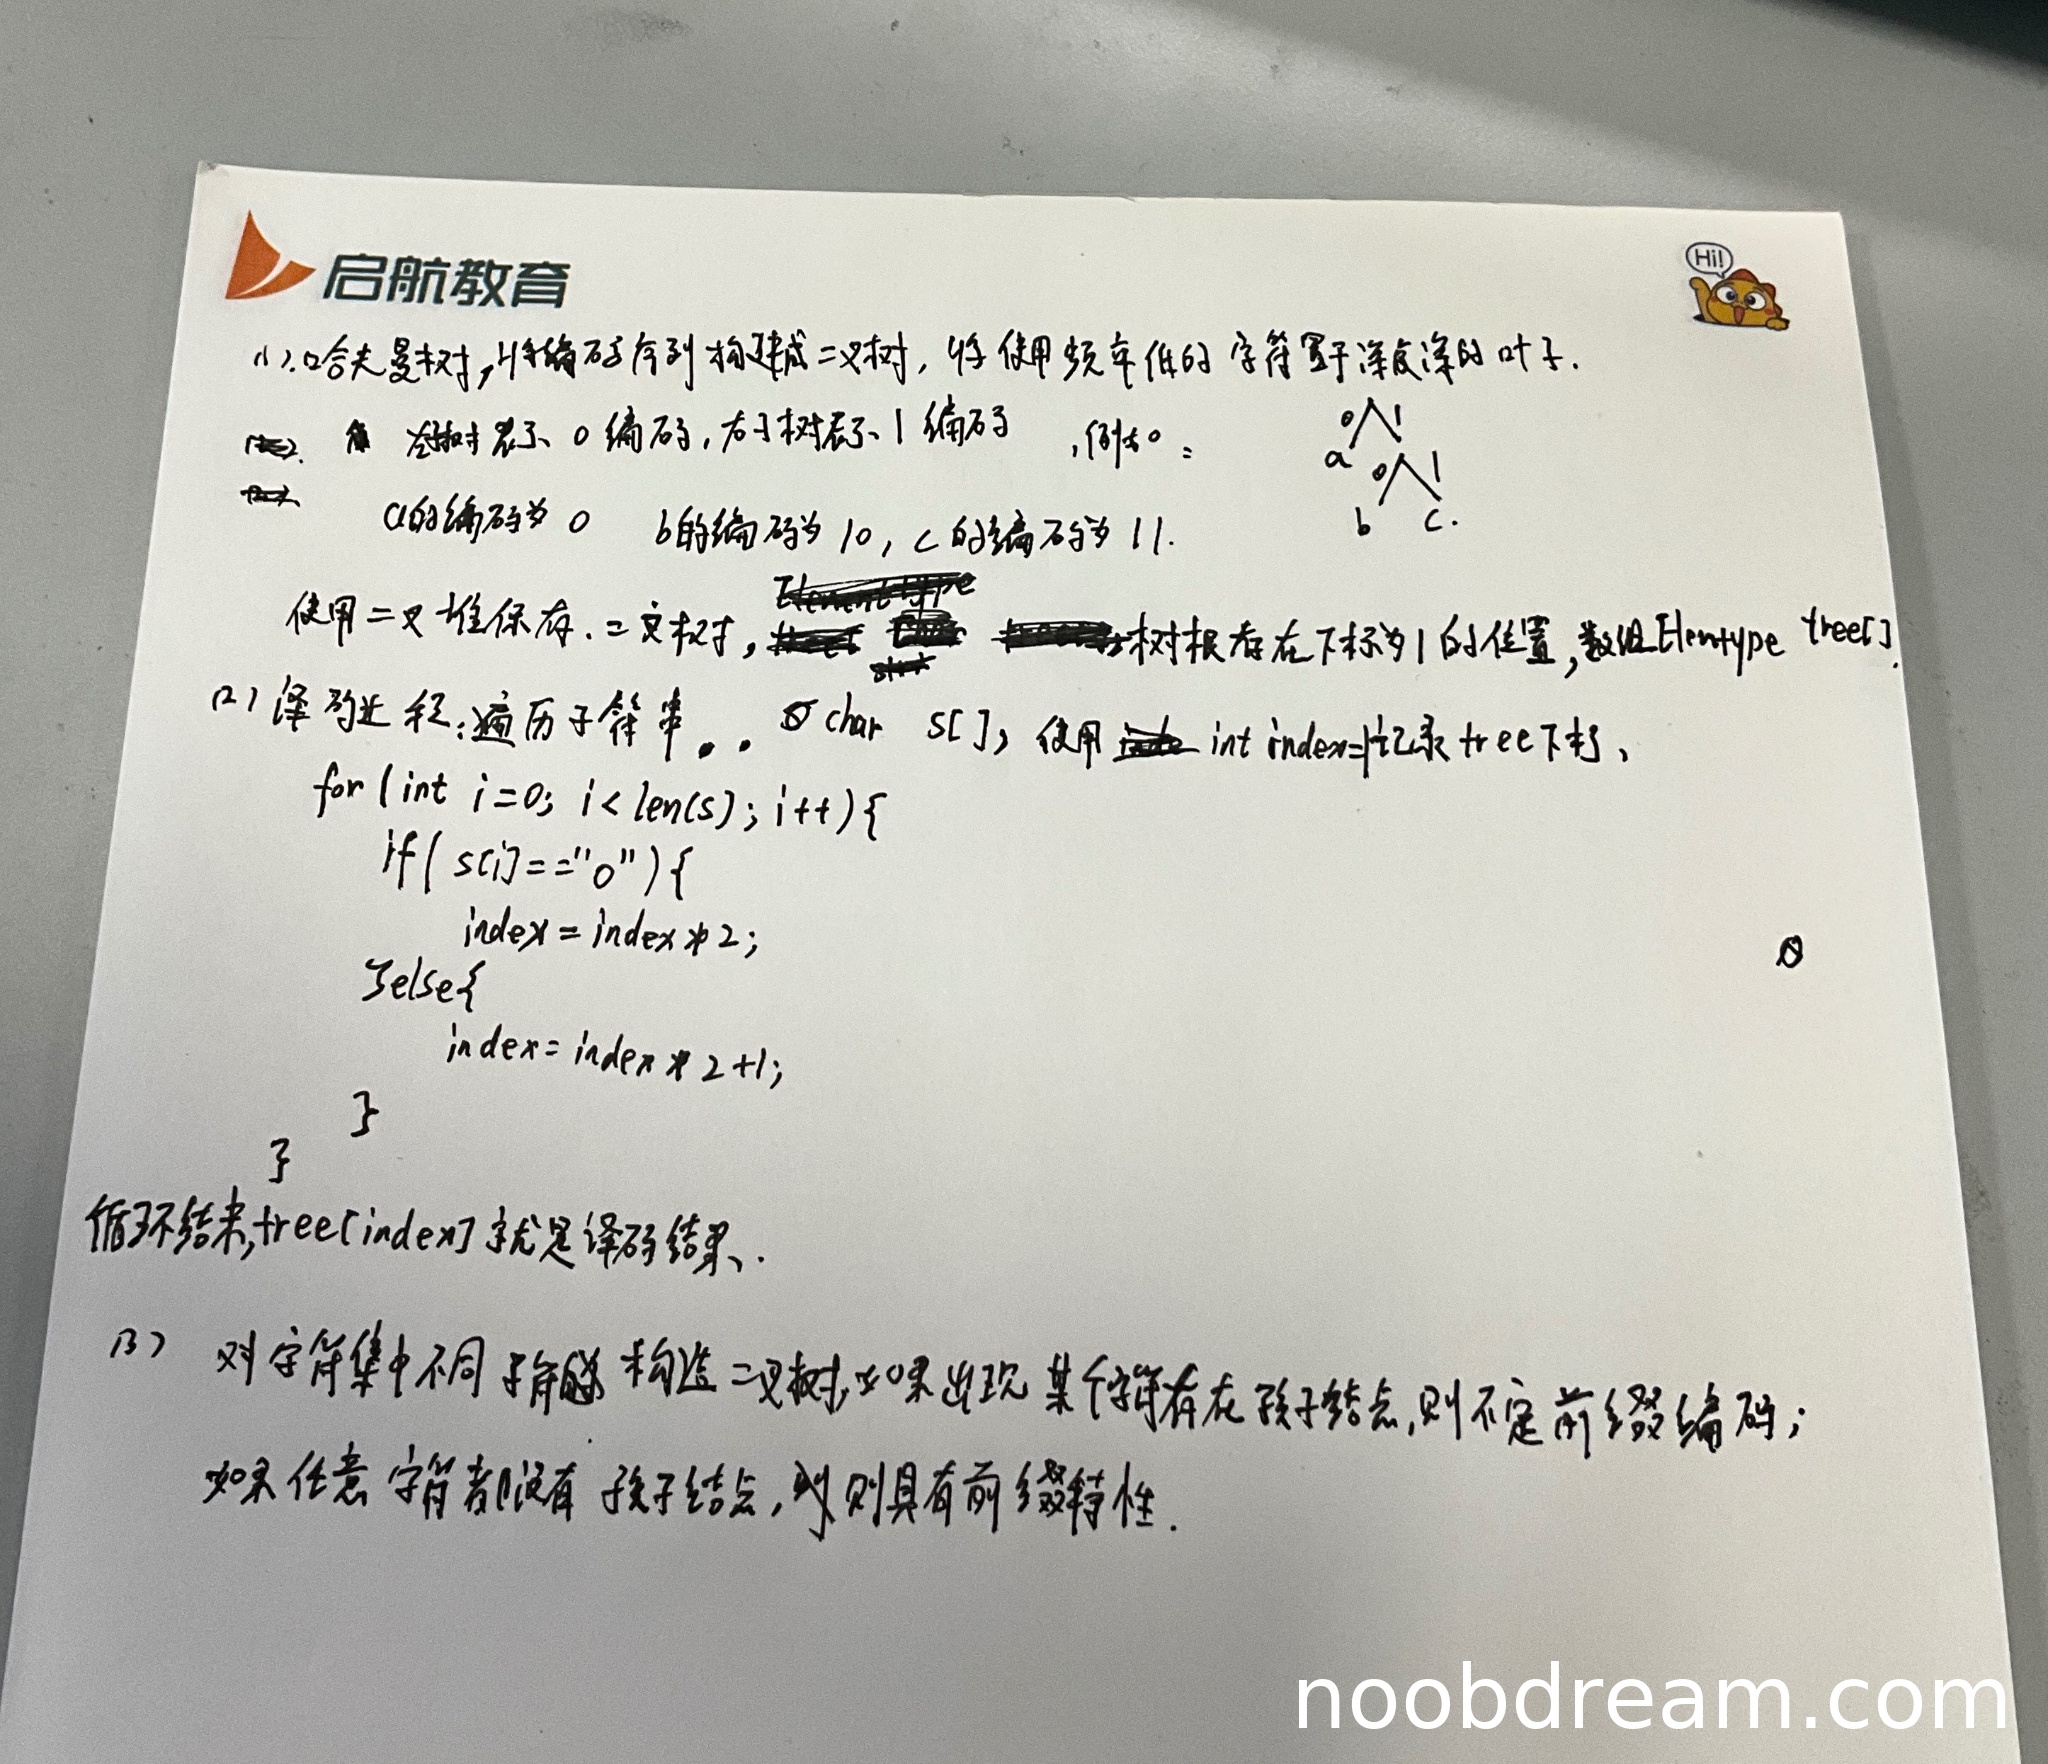 启航教育
Hi!
(1).哈夫曼树,将编码序列构建成二叉树,将使用频率低的字符置于深度深的叶子.
左子树表示0编码,右子树表示1编码,例如:
0 1
a 0 1
b c.
a的编码为0 b的编码为10,c的编码为11.
使用二叉堆保存.二叉树,树根存在下标为1的位置,数组Elemtype tree[].
(2)译码过程:遍历子符串.. char s[],使用 int index=1记录tree下标、
for(int i=0; i<len(s); i++){
if(s[i]=="0"){
index=index*2;
}else{
index=index*2+1;
}
}
循环结束,tree[index]就是译码结果、.
(3) 对字符集中不同字符 构造二叉树,如果出现某个字符存在孩子结点,则不是前缀编码;
如果任意字符都没有孩子结点,则具有前缀特性.
noobdream.com